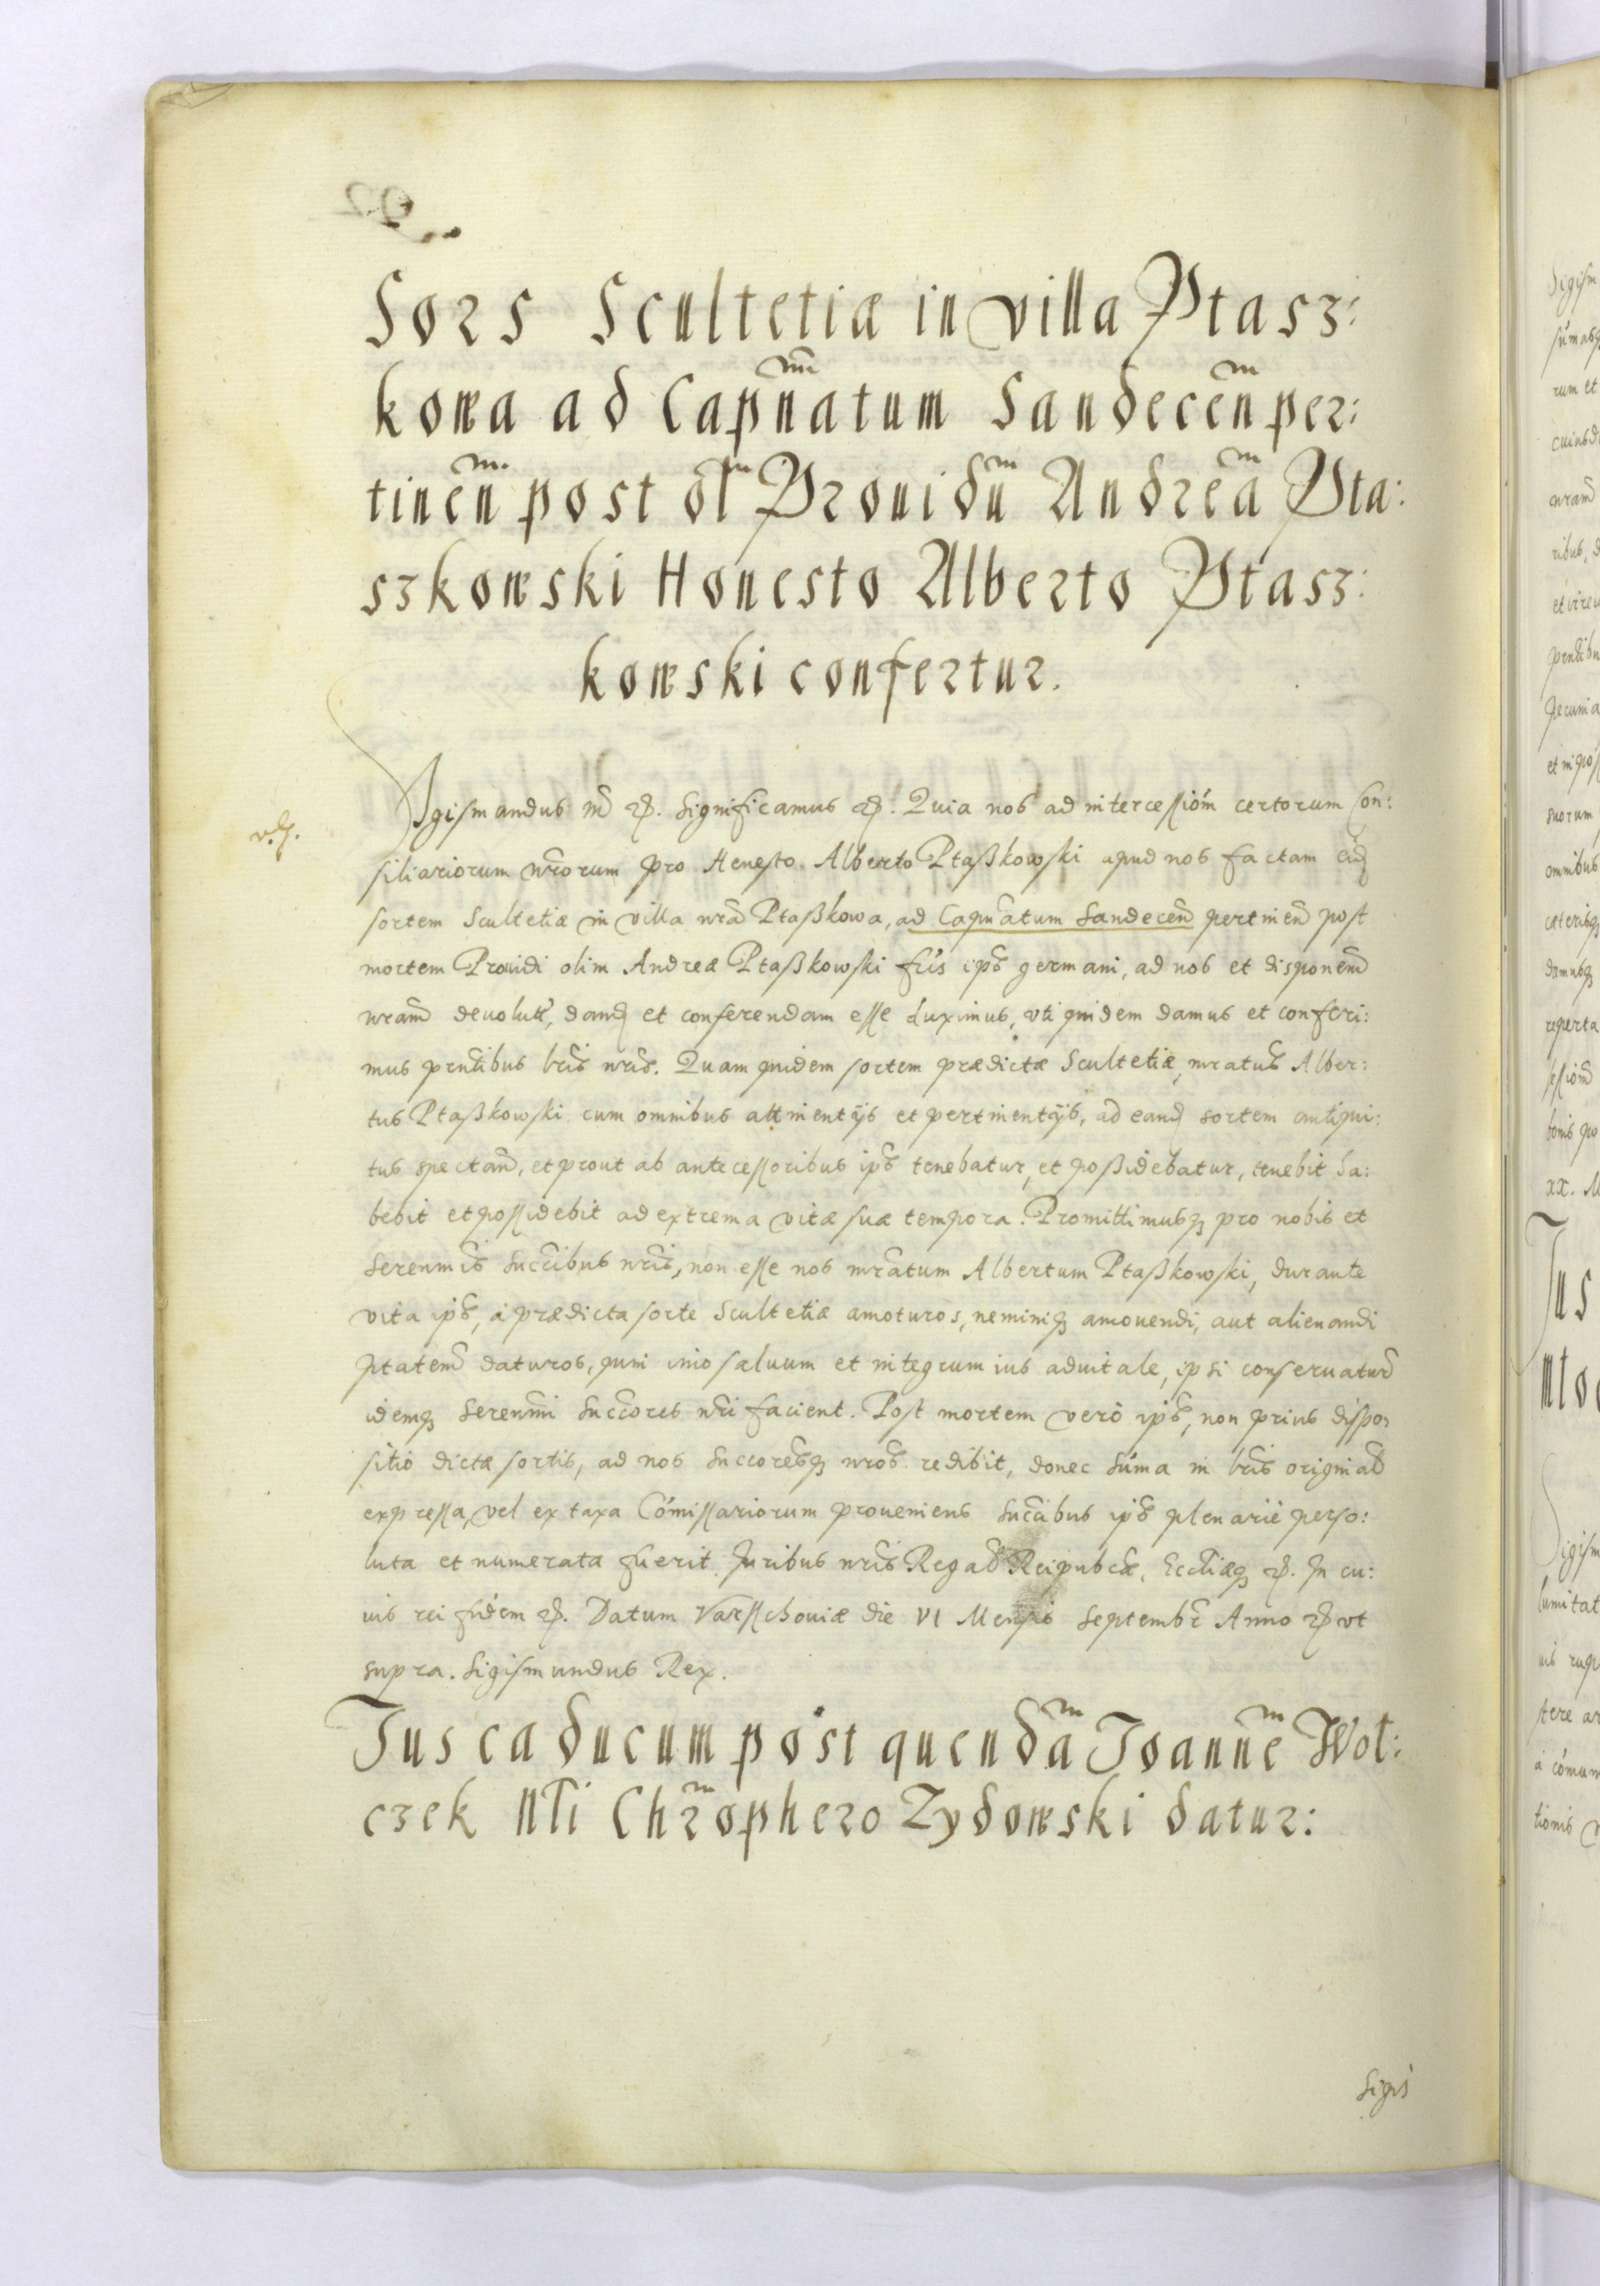 Sors Scultetiæ in villa Ptasz:
kowa ad Capn̄atum Sandecen̄ per:
tinen̄ post ol̄ Prouidū Andreā Pta:
szkowski Honesto Alberto Ptasz:
kowski confertur.
Sigismundus III etc. Significamus etc. Quia nos ad intercessiōm certorum Con:
siliariorum nrōrum pro Honesto Alberto Ptaßkowski apud nos factam eid
sortem Scultetiæ in villa nrā Ptaßkowa, ad Capnātum Sandecen̄ pertinen̄ post
mortem Prouidi olim Andreæ Ptaßkowski fris ips̄ germani, ad nos et disponem̄
nram̄ deuolut, dand et conferendam esse duximus, vti quidem damus et conferi:
mus prntibus lris nris. Quam quidem sortem prædictæ Scultetiæ, mratus Alber:
tus Ptaßkowski cum omnibus attinentijs et pertinentijs, ad eand sortem antiqui:
tus spectan̄, et prout ab antecessoribus ips̄ tenebatur, et poßidebatur, tenebit ha:
bebit et possidebit ad extrema vitæ suæ tempora. Promittimusq pro nobis et
Serenmis Succribus nris, non esse nos mratum Albertum Ptaßkowski, durante
vita ips̄, à prædicta sorte Scultetiæ amoturos, neminiq amouendi, aut alienandi
ptatem̄ daturos, quin imo saluum et integrum ius aduitale, ipsi conseruatur̄
idemq Serenmi Succores nri facient. Post mortem verò ips̄, non prius dispo:
sitio dictæ sortis, ad nos Succoresq nros redibit, donec sūma in lris original̄
expressa, vel ex taxa Cōmissariorum proueniens Succibus ips̄ plenariè perso:
luta et numerata fuerit. Juribus nris Regal̄ Reipubcæ, Eccliæq etc. In cu:
ius rei fidem etc. Datum Varsschouiæ die VI Mensis Septembr̄ Anno etc vt
supra. Sigismundus Rex.
Jus caducum post quendā Joannē Wol:
czek Nl̄i Chr̄ophero Zydowski datur:
Sigis